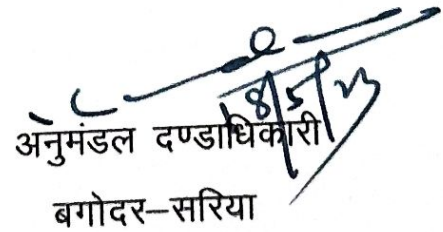 18/5/23
अनुमंडल दण्डाधिकारी
बगोदर–सरिया